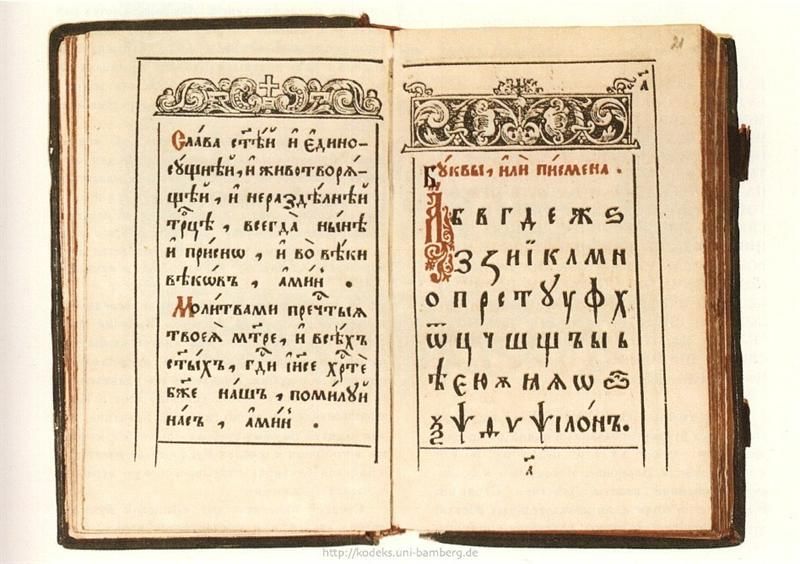 Сла́ва ст҃ѣ́й и҆ є҆ди́но-
су́щнѣй, и҆ животворѧ́-
щей, и҆ нераздѣ́лнѣй
трⷪ҇цѣ, всегда̀ ны́нѣ
и҆ при́снѡ, и҆ во̀ вѣ́ки
вѣкѡ́въ, а҆ми́нь.
Моли́твами пречⷭ҇тыѧ
твоеѧ̀ мт҃ре, и҆ всѣ́хъ
ст҃ы́хъ, гдⷭ҇и і҆и҃се хрⷭ҇тѐ
бж҃е на́шъ, поми́луй
на́съ, а҆ми́нь.
21
а҃
Бу́квы, и҆лѝ пи́смена.
А б в г д е ж ѕ
З ӡ и ї к л м н
о п р с т ꙋ у ф х
ѿ ц ч ш щ ъ ы ь
ѣ є ю ѫ ѧ ꙗ ѡ ѽ
ѯ ѱ ѳ ѵ ѱїло́нъ.
а҃
http://kodeks.uni-bamberg.de